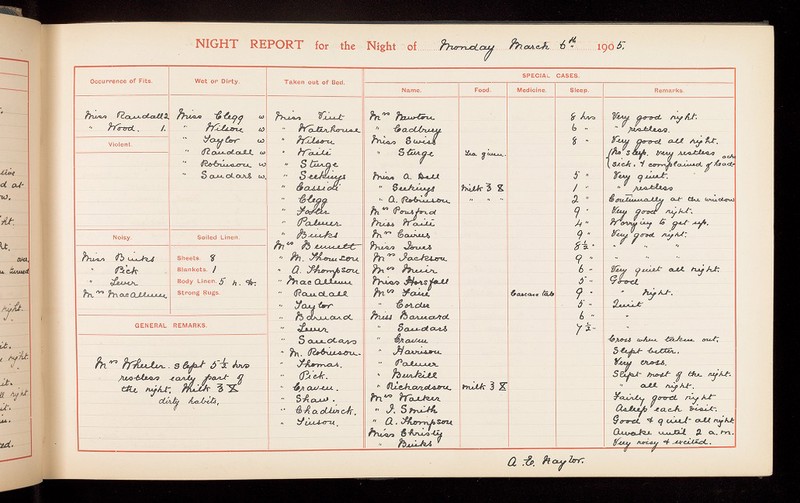 NIGHT REPORT for the Night of Monday March 6th 1905.
Occurrence of Fits.
Miss Randall 2
" Wood. 1.
Violent.
Noisy.
Miss Binks
" Pick
" Lever
Mrs MacAllum
Wet or Dirty.
Miss Clegg w
" Wilson w
" Taylor w
" Randall w
" Robinson w
" Sandars w.
Soiled Linen.
Sheets. 8
Blankets. 1
Body Linen. 5 n. Gr.
Strong Rugs.
GENERAL REMARKS.
Mrs Wheeler. slept 5½ hrs
restless early part of
the night. Milk ℥ X
dirty habits,
Taken out of Bed.
Miss Vint
" Waterhouse
" Wilson
" Waili
" Sturge
" Seekings
" Cassidi
" Clegg
" Foster
" Palmer
" Binks
Mrs Bennett
" M. Thomson
" A. Thompson
" MacAllum
" Randall
" Taylor
" Barnard
" Lever
" Sandars
" M. Robinson.
" Thomas.
" Pick.
" Craven.
" Shaw.
" Chadwick.
SPECIAL CASES.
Name. Food. Medicine. Sleep. Remarks.
Mrs Newton 8 hrs Very good night.
" Cadbury 6 " " restless.
Miss Swiss 8 " Very good all night.
" Sturge Tea given. No sleep. very restless
sick. & complained of head ache
Miss A. Bell 5 " Very quiet.
" Seekings Milk ℥ X 1 " " restless
" A. Robinson " " " 2 " Continually at the window
Mrs Pousford 9 " Very good night.
Miss Waili 4 " Worrying to get up.
Mrs Cairns 9 " Very good night.
Miss Jones 8½ " " " "
Mrs Jackson 9 " " " "
Mrs Muir 6 " Very quiet all night.
Miss Horsfall 5 " Good
Mrs Fane Cascara tab 9 " " Night.
" Corder 5 " Quiet
Miss Barnard 6 " "
" Sandars 7½ "
" Craven Cross when taken out.
" Harrison Slept better.
" Palmer Very cross.
" Burkill Slept most of the night.
" Richardson milk ℥ X " all night.
Mrs Walker Fairly good night
" J. Smith Asleep each visit.
" A. Thompson Good & quiet all night
Miss Christy Awake until 2 a.m.
" Binks Very noisy & excited.
A. C. Naylor.